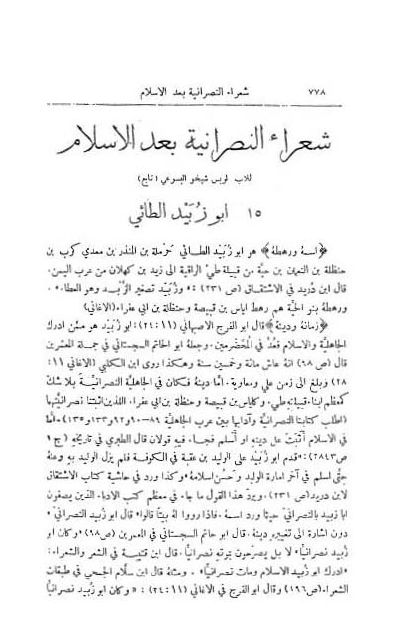 ٧٧٨ شعراء النصرانية بعد الاسلام
شعراء النصرانية بعد الاسلام
للاب لويس شيخو اليسوعي (تابع)
١٥ ابو زُبَيد الطائي
﴿اسمهُ ورهطهُ﴾ هو ابو زُبَيد الطائي حَرْمَلة بن المنذر بن معدي كرب بن
حنظلة بن النعمن بن حيَّة من قبيلة طيّ الراقية الى زيد بن كهلان من عرب اليمن.
قال ابن دُريد في الاشتقاق (ص ٢٣١) : «وزُبَيد تصغير الزَّبْد وهو العطاء».
ورهطهُ بنو الحيَّة هم رهط اياس بن قبيصة وحنظلة بن ابي عفراء (الاغاني)
﴿زمانهُ ودينهُ﴾ قال ابو الفرج الاصبهاني (٢٤:١١): ابو زُبَيد هو ممَّن ادرك
الجاهلية والاسلام فعُدَّ في المخضرمين. وجعلهُ ابو الحاتم السجستاني في جملة المعمرين
قال (ص ٩٨) انهُ عاش مائة وخمسين سنة وهكذا روى ابن الكلبي (الاغاني ١١:
٢٨) وبلغ الى زمن علي ومعاوية. امَّا دينهُ فكان في الجاهلية النصرانية بلا شك
كمعظم ابناء قبيلته طي. وكاياس بن قبيصة وحنظلة بن ابي عفراء اللذين اثبتنا نصرانيَّتها
(اطلب كتابنا النصرانية وآدابها بين عرب الجاهلية ٨٦–٩٠ و٩٢ و١٣٣ و١٣٥). امَّا
في الاسلام أَثَبَتَ على دينهِ او أَسلم فجاء فيهِ قولان قال الطبري في تاريخهِ (ج ١
ص ٢٨٤٣): «قدم ابو زُبَيد على الوليد بن عقبة في الكوفة فلم يزل الوليد بهِ وعنهُ
حتَّى اسلم في آخر امارة الوليد وحَسُن اسلامهُ» وكذا ورد في حاشية كتاب الاشتقاق
لابن دريد (ص ٢٣١). ويردّ هذا القول ما جاء في معظم كتب الادباء الذين يصفون
ابا زبيد بالنصراني حيثما ورد اسمهُ. فاذا رووا لهُ بيتًا قالوا: «قال ابو زُبَيد النصراني»
دون اشارة الى تغييرهِ دينهُ. قال ابو حاتم السجستاني في المعمرين (ص ٩٨): «وكان ابو
زُبيد نصرانيًّا» لا بل يصرّحون بموتهِ نصرانيًّا. قال ابن قتيبة في الشعر والشعراء:
«ادرك ابو زُبيد الاسلام ومات نصرانيًّا». ومثلهُ قال ابن سلَّام الجمحي في طبقات
الشعراء (ص ١٩٦) وقال ابو الفرج في الاغاني (٢٤:١١) : «وكان ابو زُبَيد نصرانيًّا